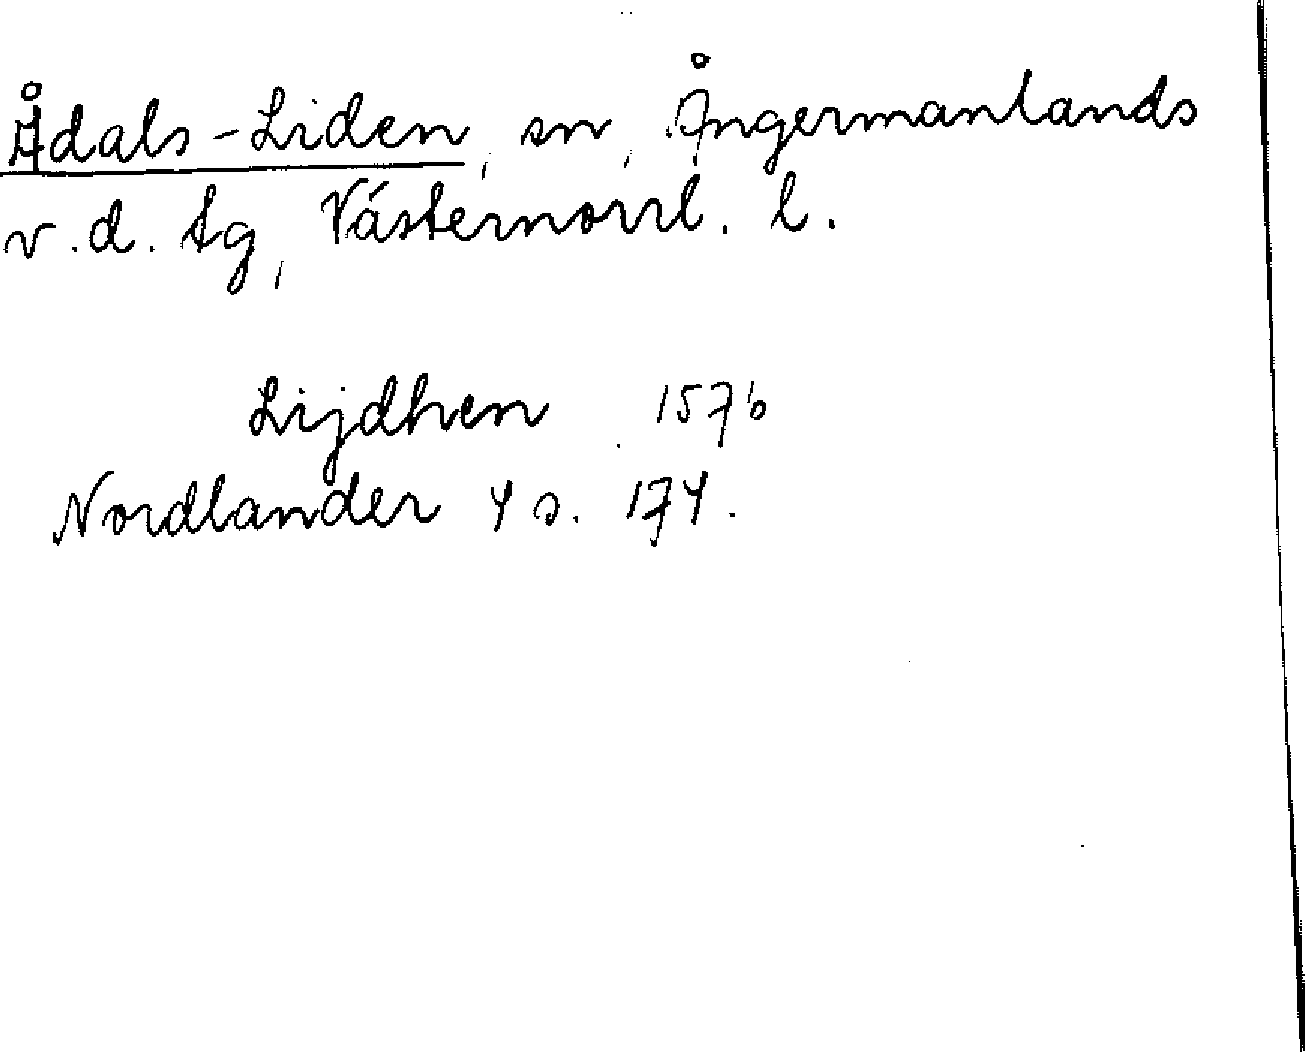 Ådals-Liden, sn, Ångermanlands
v.d. tg, Västernorrl. l.
Lijdhen 1576
Nordlander 4 s. 174.